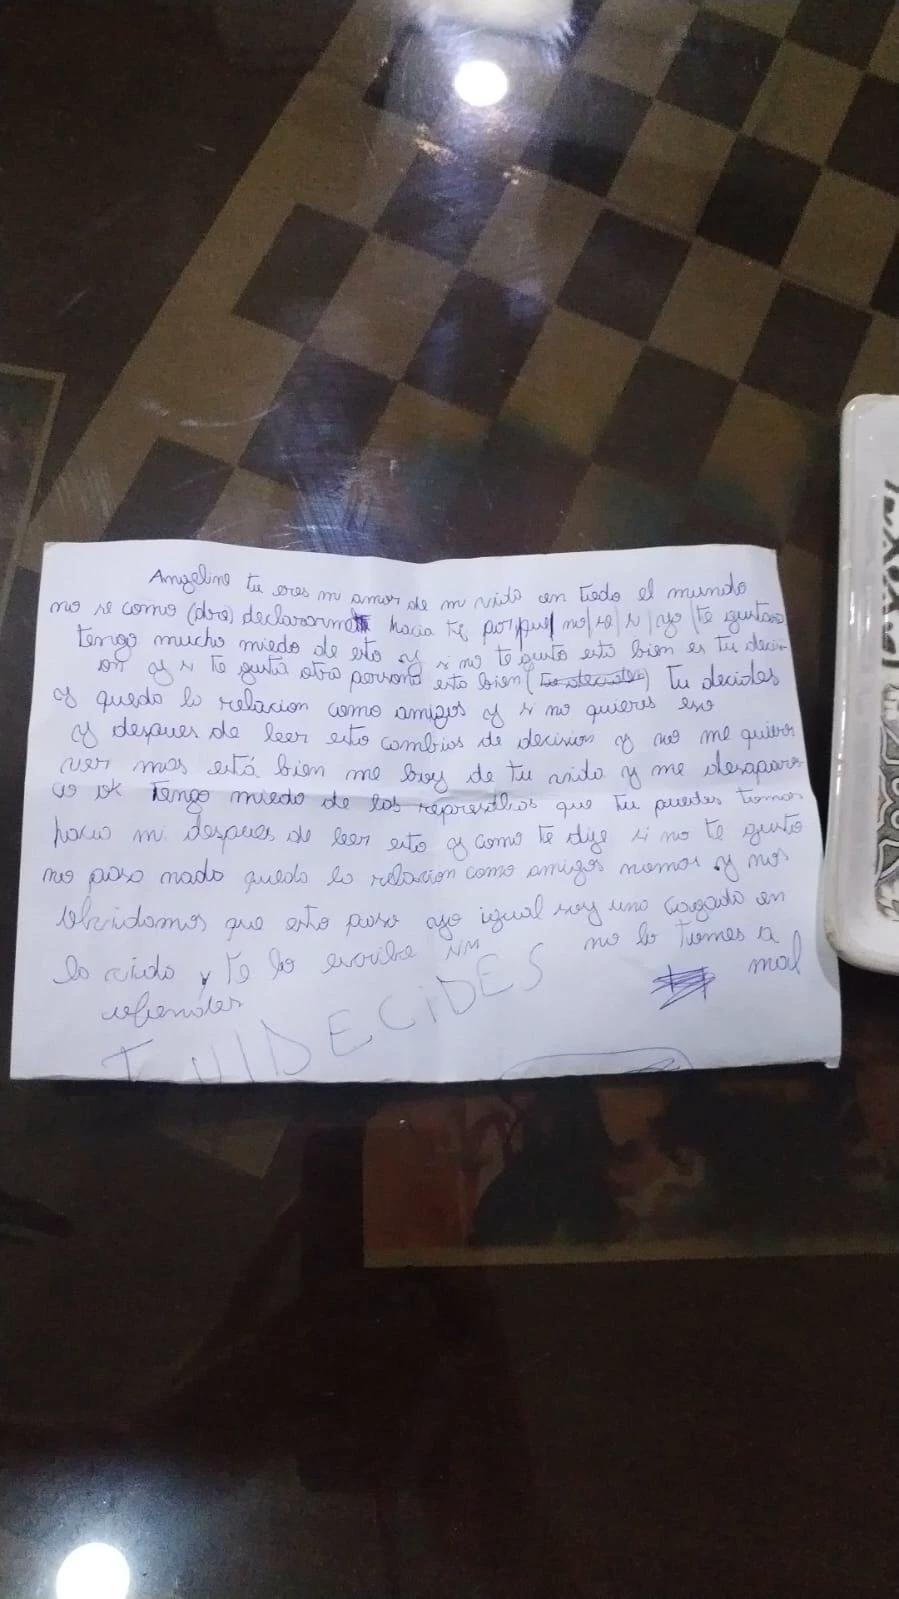 Angeline tu eres mi amor de mi vida en todo el mundo
no se como (dra) declararme hacia ti porque/no/se/si/yo/te gustara
tengo mucho miedo de esto y si no te gusto está bien es tu decisi-
on y si te gusta otra persona esta bien (tu decides) Tu decides
y queda la relacion como amigos y si no quieres eso
y despues de leer esto cambias de decision y no me quieres
ver mas está bien me boy de tu vida y me desapares
co ok Tengo miedo de las represalias que tu puedas tomar
hacia mi despues de leer esto y como te dije si no te gusto
no pasa nada queda la relacion como amigos nomas y nos
olvidamos que esto paso yo igual soy una cagada en
la vida y Te lo escribe NM no lo tomes a
mal
TU DECIDES